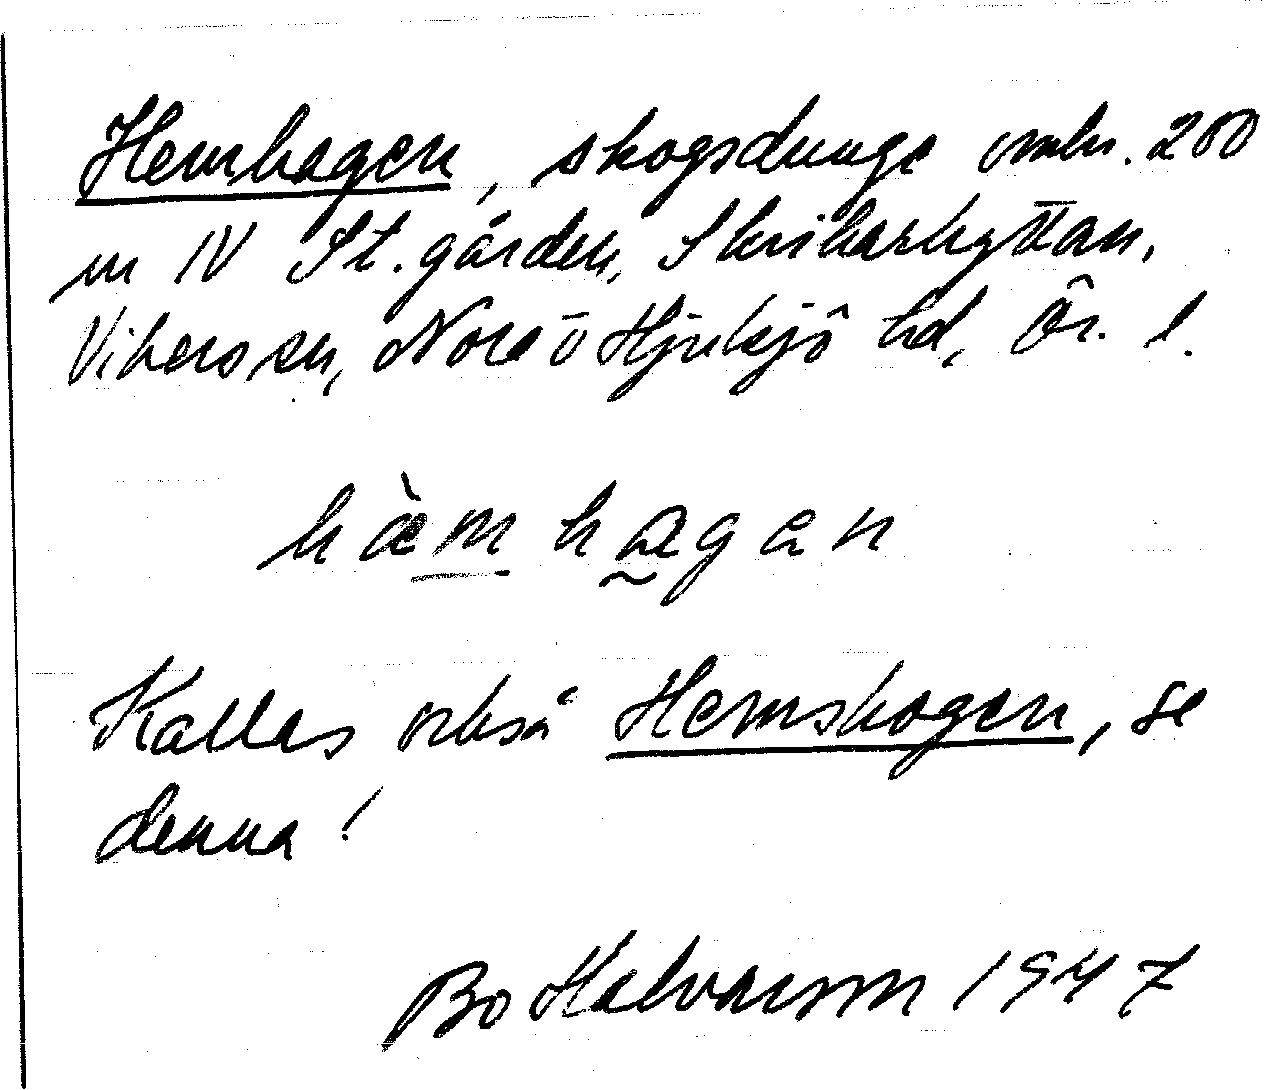 Hemhagen, skogsdunge omkr. 200
m NV St. gården, Skrikarhyttan,
Vikers sn, Nora o Hjulsjö hd, Ör. l.
hæ̀m hagan
Kallas också Hemskogen, se
denna!
Bo Halvarsson 1947